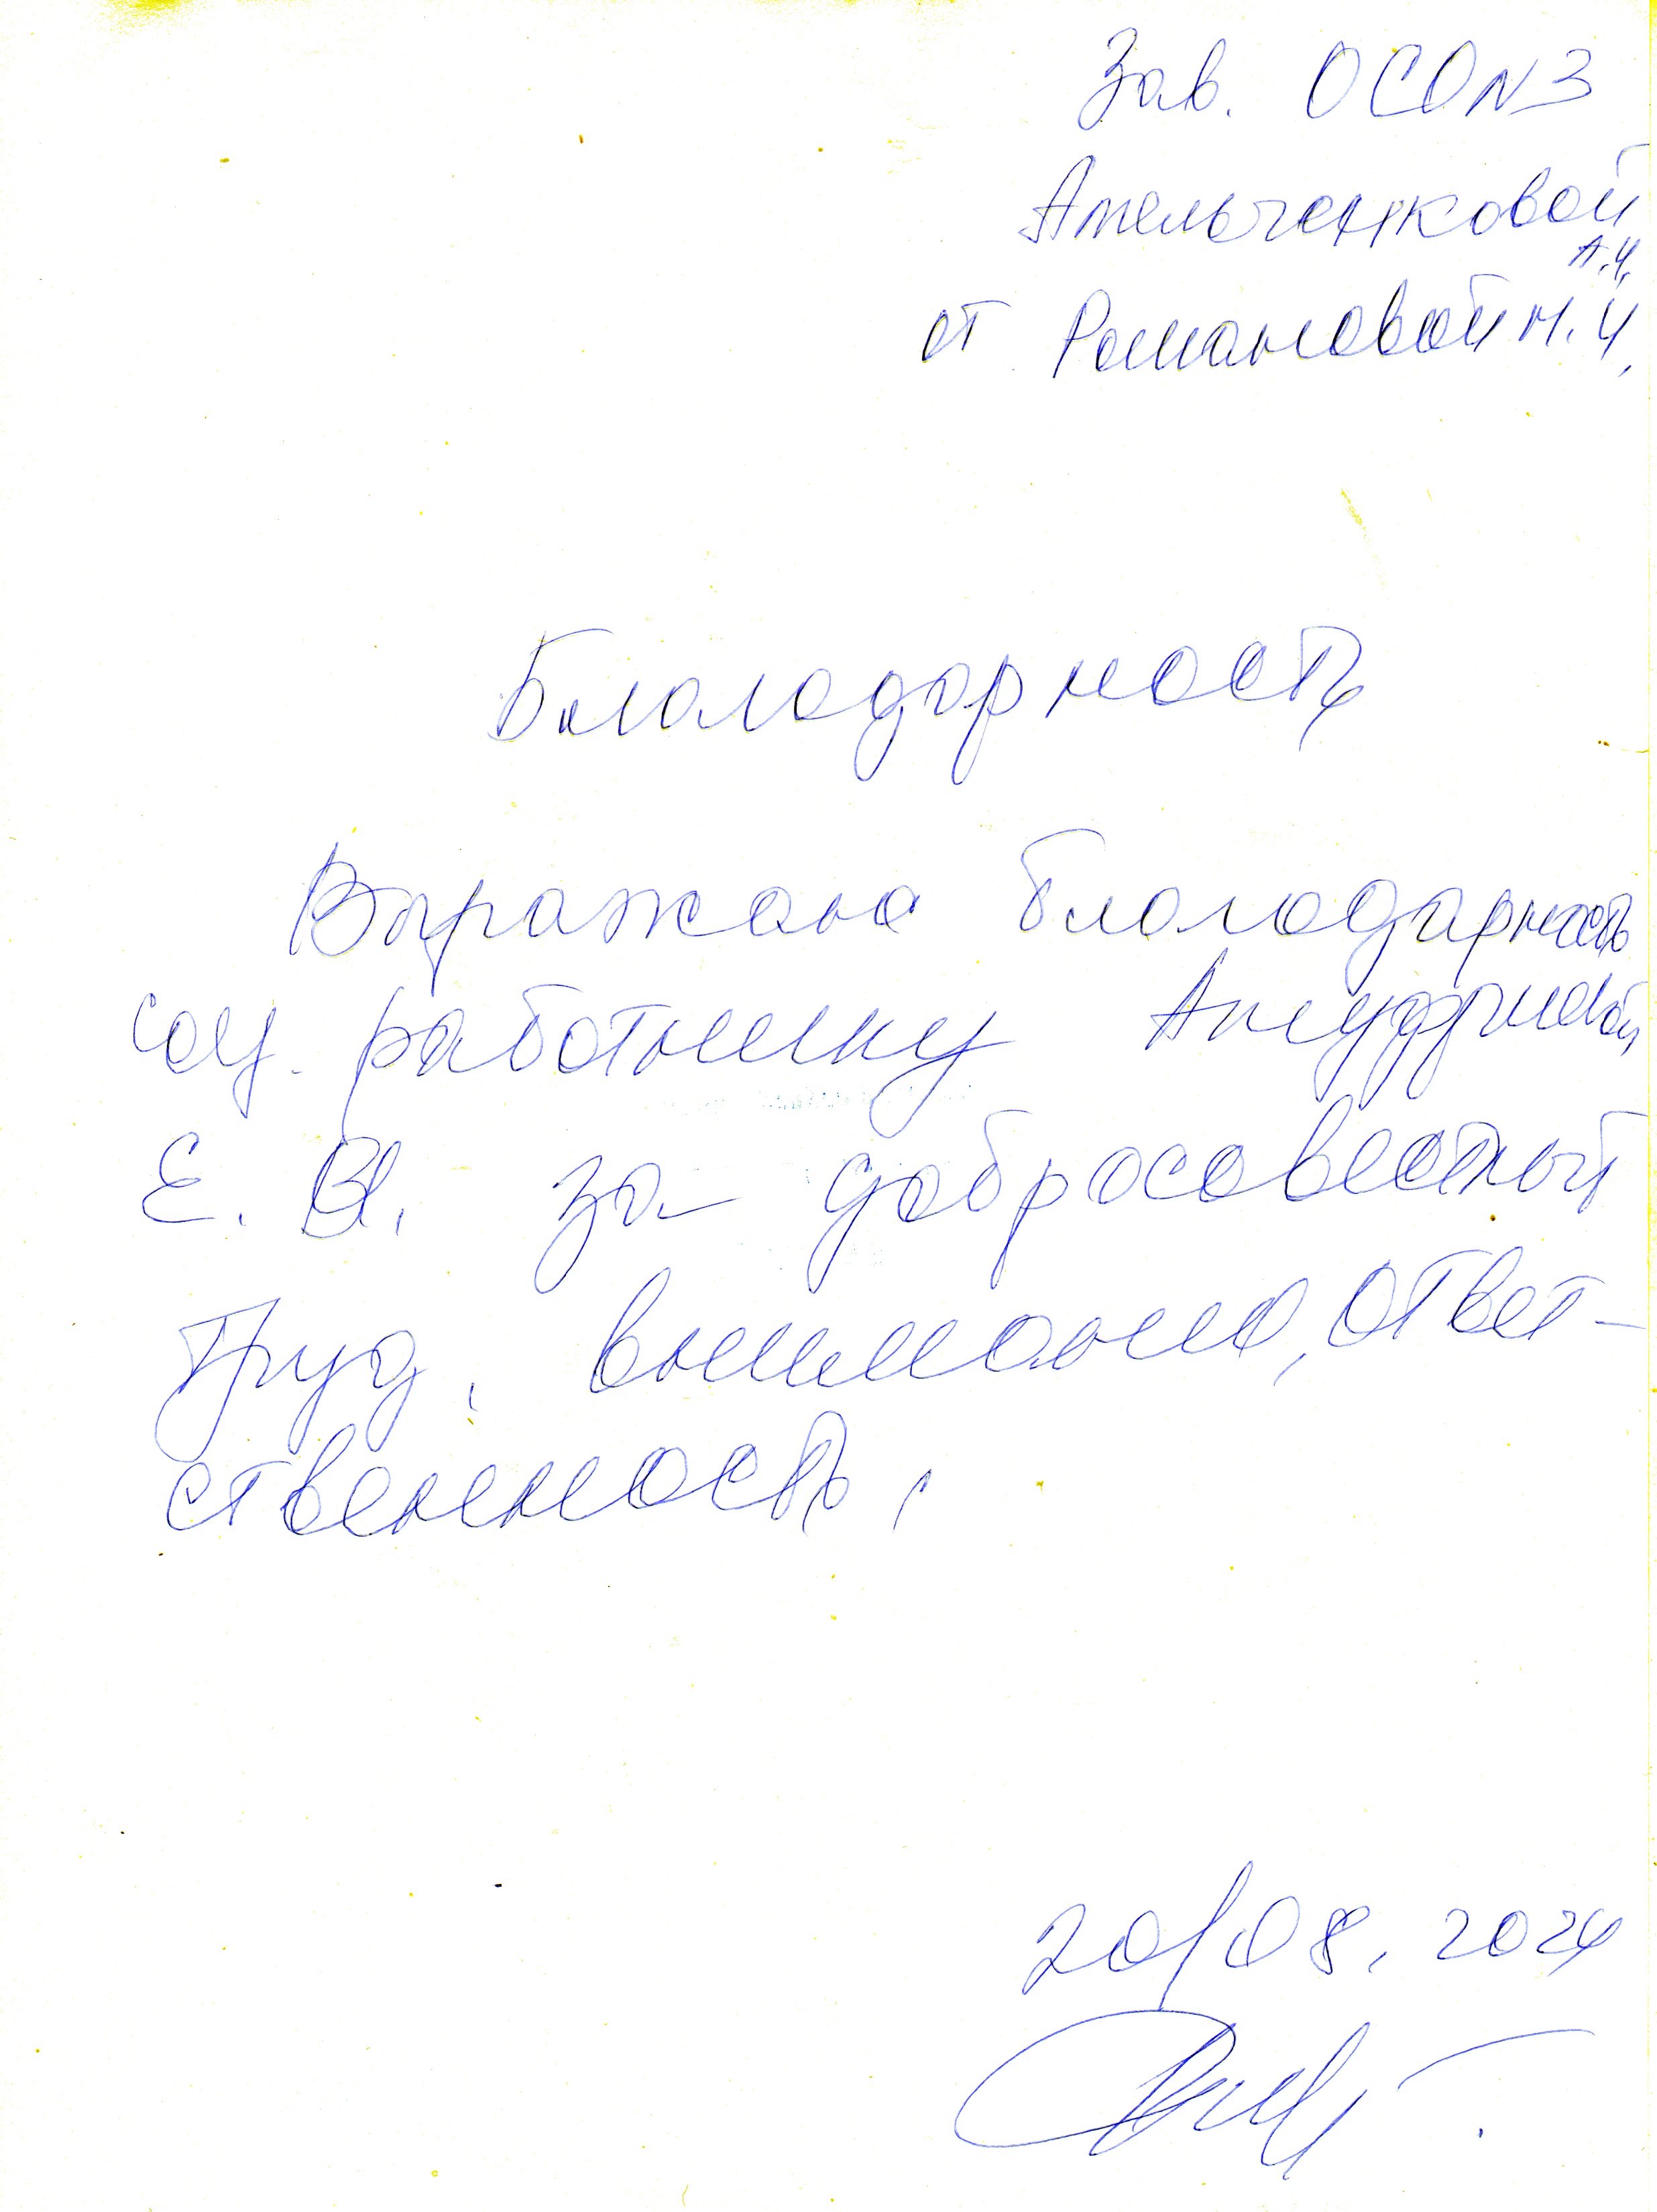 Зав. ОСО №3
Амельченковой
А.И.
от Романовой Н.И.
Благодарность
Выражаю благодарность
соц. работнику
Е. В. за добросовестный
труд, внимание, ответ-
ственность.
20/08.2024